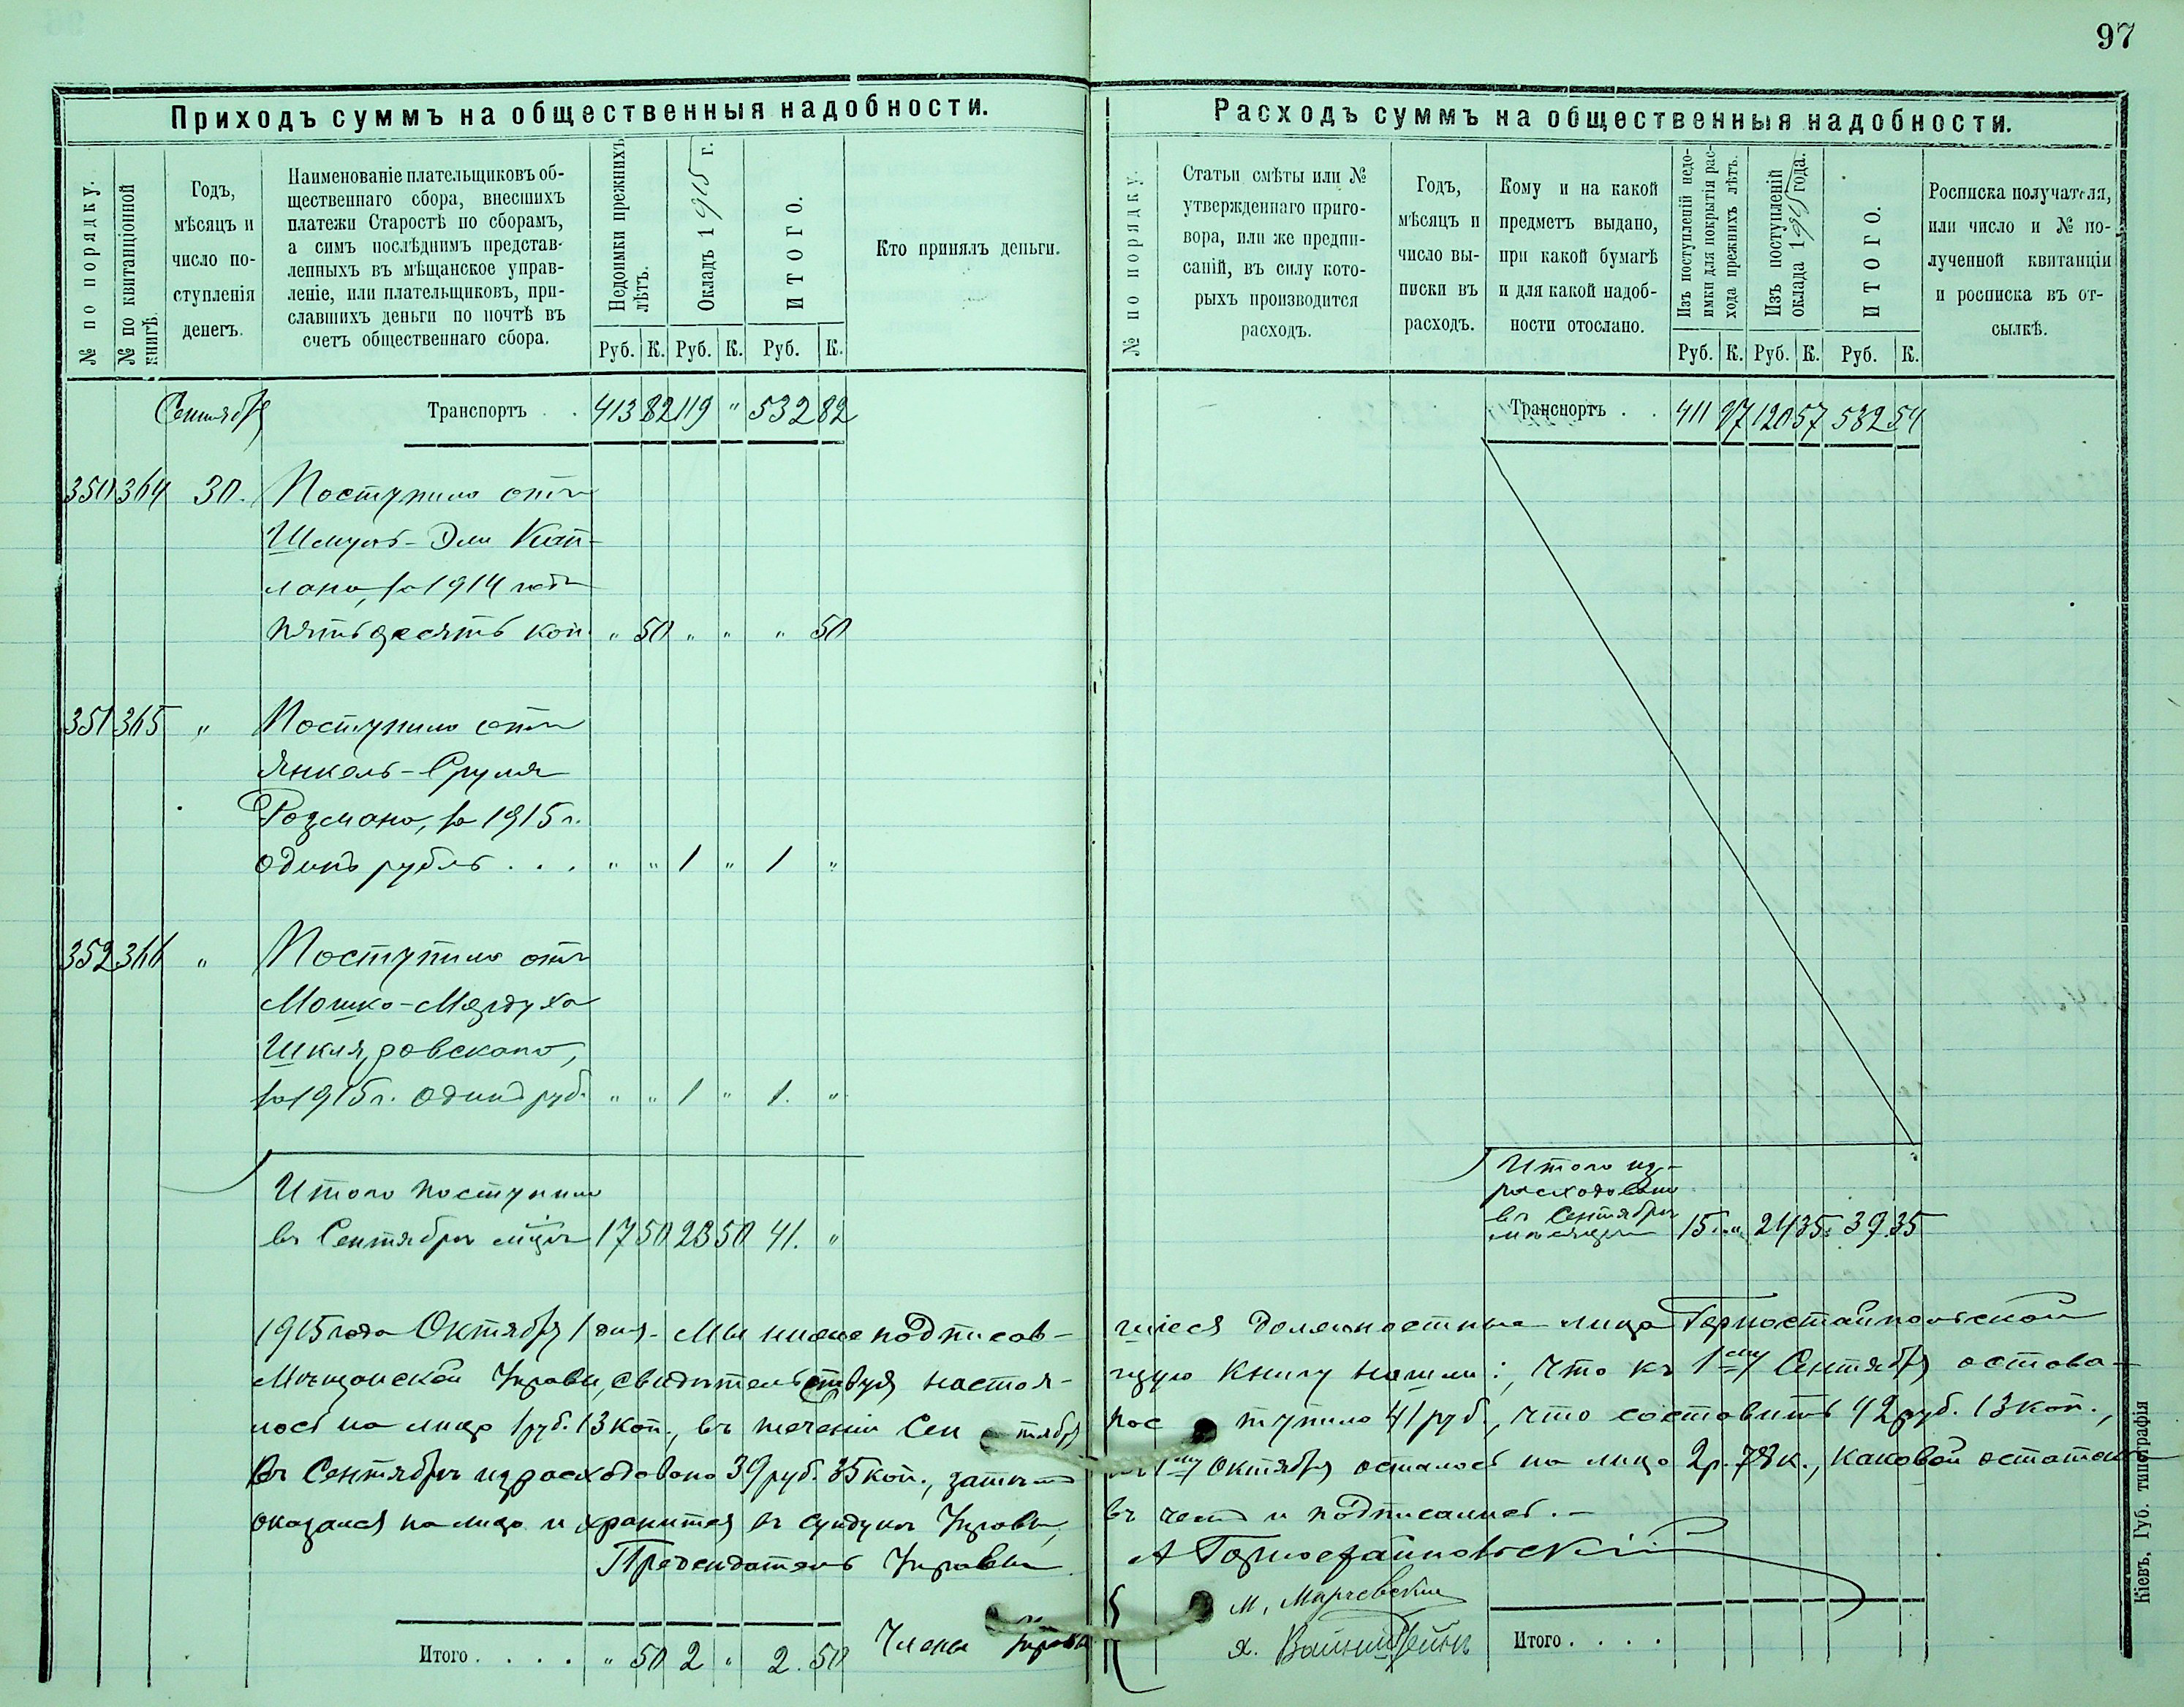 97
Приходъ суммъ на общественныя надобности.
№ по порядку.
№ по квитанціонной книгѣ.
Годъ,
мѣсяцъ и
число по-
ступленія
денегъ.
Наименованіе плательщиковъ об-
щественнаго сбора, внесшихъ
платежи Старостѣ по сборамъ,
а симъ послѣднимъ представ-
ленныхъ въ мѣщанское управ-
леніе, или плательщиковъ, при-
славшихъ деньги по почтѣ въ
счетъ общественнаго сбора.
Недоимки прежнихъ
лѣтъ.
Окладъ 1915 г.
ИТОГО.
Руб. К. Руб. К. Руб. К.
Кто принялъ деньги.
Сентября Транспортъ . . 413 82 119 " 532 82
350 364 30. Поступило отъ
Шмуль-Эли Кап-
лана, за 1914 годъ
пятьдесятъ коп. " 50 " " " 50
351 365 " Поступило отъ
Янкель-Сруля
Розмана, за 1915 г.
одинъ рубль . . . " " 1 " 1 "
352 366 " Поступило отъ
Мошко-Мардуха
Шкляровскаго,
за 1915 г. одинъ руб. " " 1 " 1. "
Итого поступило
въ Сентябрѣ м-цѣ 17 50 23 50 41. "
Расходъ суммъ на общественныя надобности.
№ по порядку.
Статьи смѣты или №
утвержденнаго приго-
вора, или же предпи-
саній, въ силу кото-
рыхъ производится
расходъ.
Годъ,
мѣсяцъ и
число вы-
писки въ
расходъ.
Кому и на какой
предметъ выдано,
при какой бумагѣ
и для какой надоб-
ности отослано.
Изъ поступленій недо-
имки для покрытія рас-
хода прежнихъ лѣтъ.
Изъ поступленій
оклада 1915 года.
ИТОГО.
Руб. К. Руб. К. Руб. К.
Росписка получателя,
или число и № по-
лученной квитанціи
и росписка въ от-
сылкѣ.
Транспортъ . . 411 97 120 57 532 54
Итого из-
расходовано
въ Сентябрѣ
мѣсяцѣ 15 " 24 35 39 35
1915 года Октября 1 дня. Мы нижеподписав-шіеся должностные лица Горностайпольской
Мѣщанской Управы, свидѣтельствуя настоя-щую книгу нашли:, что къ 1му Сентября остава-
лось на лицо 1 руб. 13 коп., въ теченіи Сентября поступило 41 руб., что составитъ 42 руб. 13 коп.,
въ Сентябрѣ израсходовано 39 руб. 35 коп., затѣмъ къ 1му Октября осталось на лицо 2 р. 78 к., каковой остатокъ
оказался на лицо и хранится въ сундукѣ Управы, въ чемъ и подписались.-
Предсѣдатель Управы А Горностайпольскій
Члены Управы { М. Марчевскій
Я. Вайнштейнъ
Итого . . . . " 50 2 " 2. 50
Итого . . . .
Кіевъ, Губ. типографія